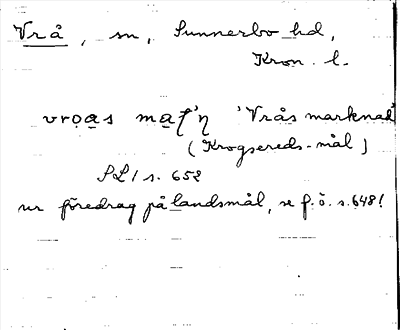 Vrå, sn, Sunnerbo hd,
Kron. l.
vro̤a̤s ma̤ʃ'ŋ 'Vrås marknad'
(Krogsereds-mål)
SL 1 s. 652
ur föredrag på landsmål, se f.ö. s. 648!